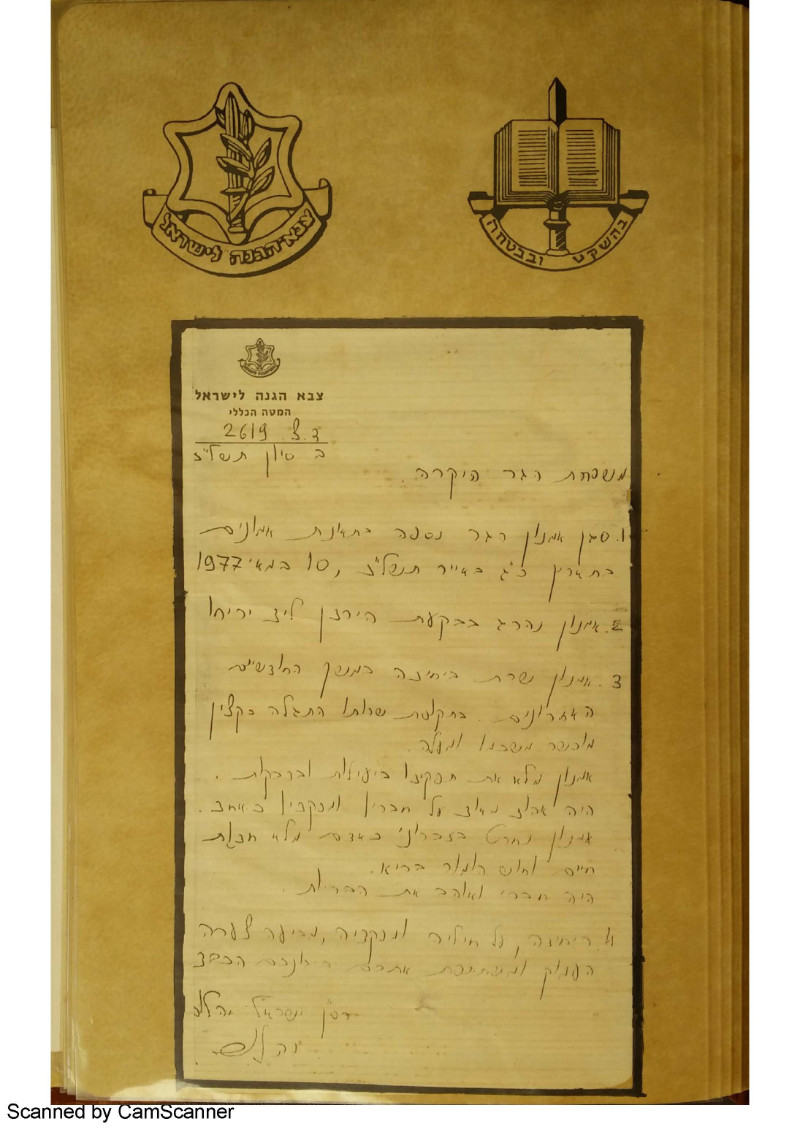 צבא הגנה לישראל
בהשקט ובבטחה
צבא הגנה לישראל
המטה הכללי
ד.צ. 2619
ב סיון תשל"ז
משפחת הגר היקרה.
1. סגן אמנון הגר נספה בתאונת אמונים
בתאריך כ"ג באייר תשל"ז, 10 במאי 1977
2. אמנון נהרג בבקעת הירדן ליד יריחו
3. אמנון שרת ביחידה במשך החודשיים
האחרונים. בתקופת שרותו התגלה כקצין
מוכשר משכמו ומעלה.
אמנון מלא את תפקידו ביעילות ובדבקות.
היה אהוב מאוד על חבריו ומפקדיו כאחד.
אמנון נחרט בזכרוני כאדם מלא חדות
חיים וחוש הומור בריא.
היה חברי ואוהב את הבריות.
4. היחידה, על חייליה ומפקדיה, מביעה צערה
העמוק ומשתתפת אתכם ביגונכם הכבד
רס"ן ישראל
Scanned by CamScanner